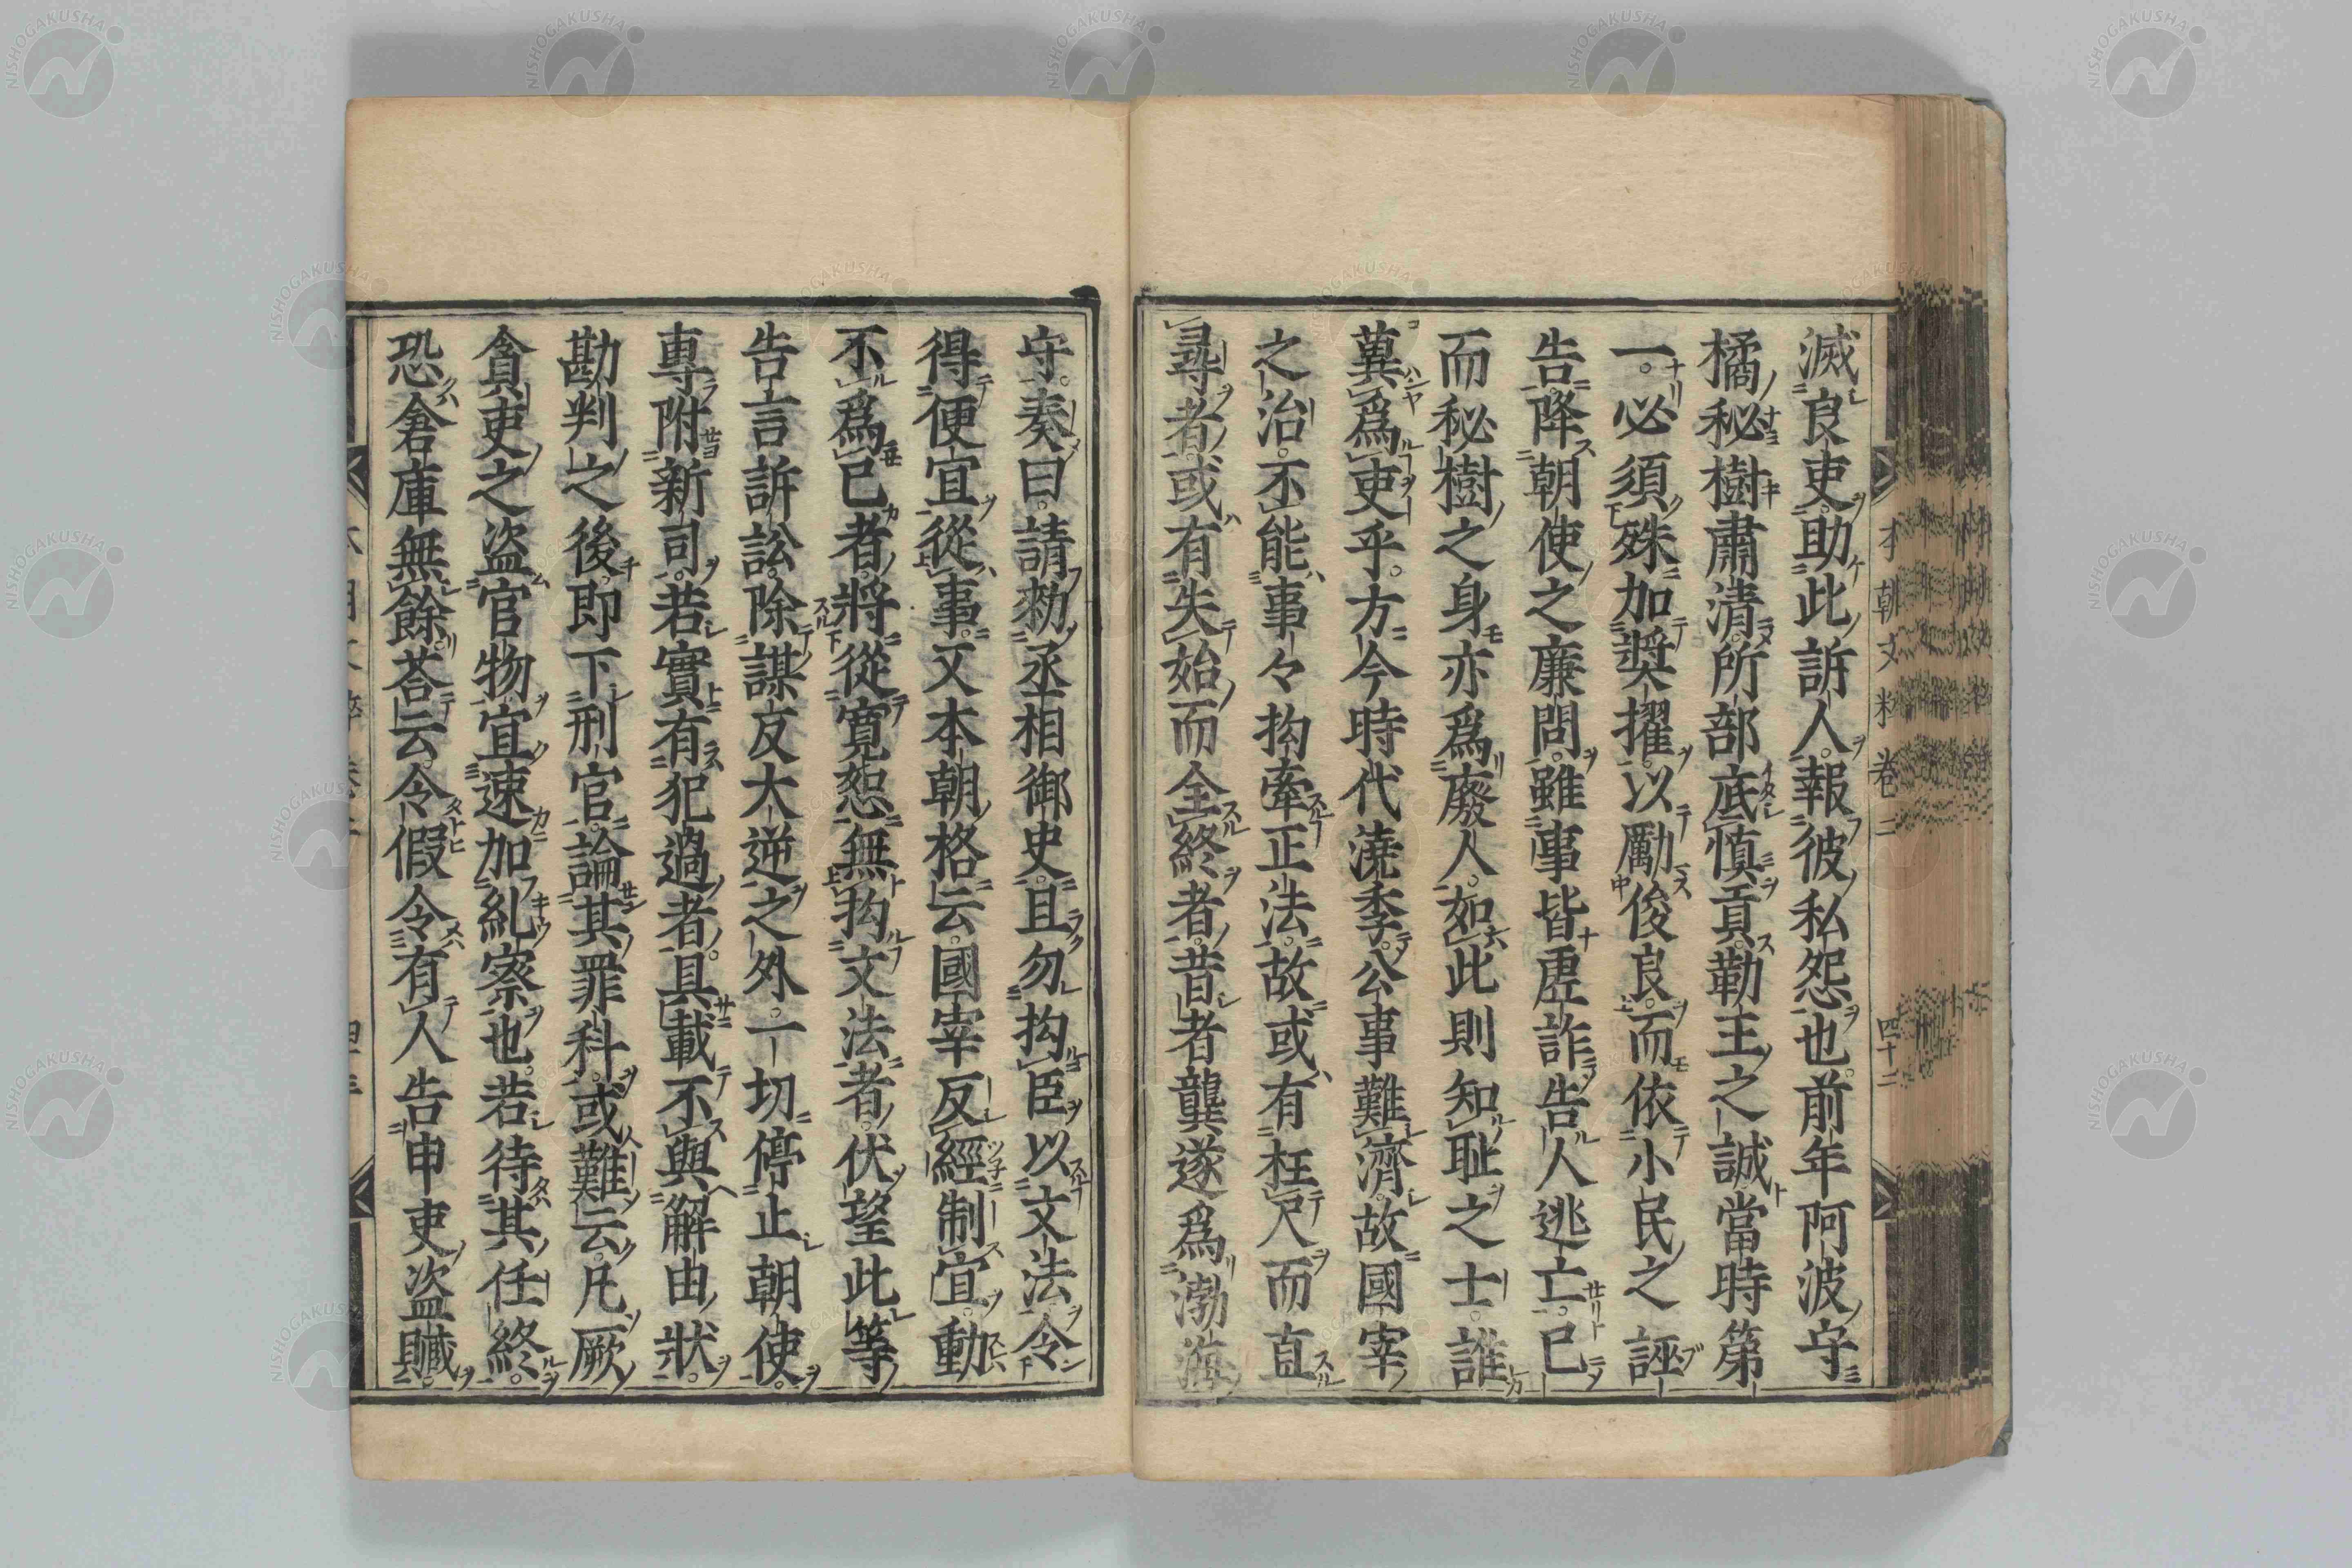 滅良吏助此訴人報彼私怨也前年阿波守
橘秘樹肅清所部底慎貢勤王之誠當時第
一必須殊加奬擢以勵俊良而依小民之誣
告降朝使之廉問雖事皆虛詐告人逃亡已
而秘樹之身亦爲廢人如此則知耻之士誰
冀爲吏乎方今時代澆季公事難濟故國宰
之治不能事々拘牽正法故或有枉尺而直
尋者或有失始而全終者昔者龔遂爲渤海
守奏曰請勑丞相御史且勿拘臣以文法令
得便宜從事又本朝格云國宰反經制宜動
不爲已者將從寬恕無拘文法者伏望此等
告言訴訟除謀反大逆之外一切停止朝使
專附新司若實有犯過者具載不與解由狀
勘判之後即下刑官論其罪科或難云凡厥
貪吏之盜官物宜速加糺察也若待其任終
恐倉庫無餘荅云令假令有人告申吏盜贓
本朝文粹卷二
四十二